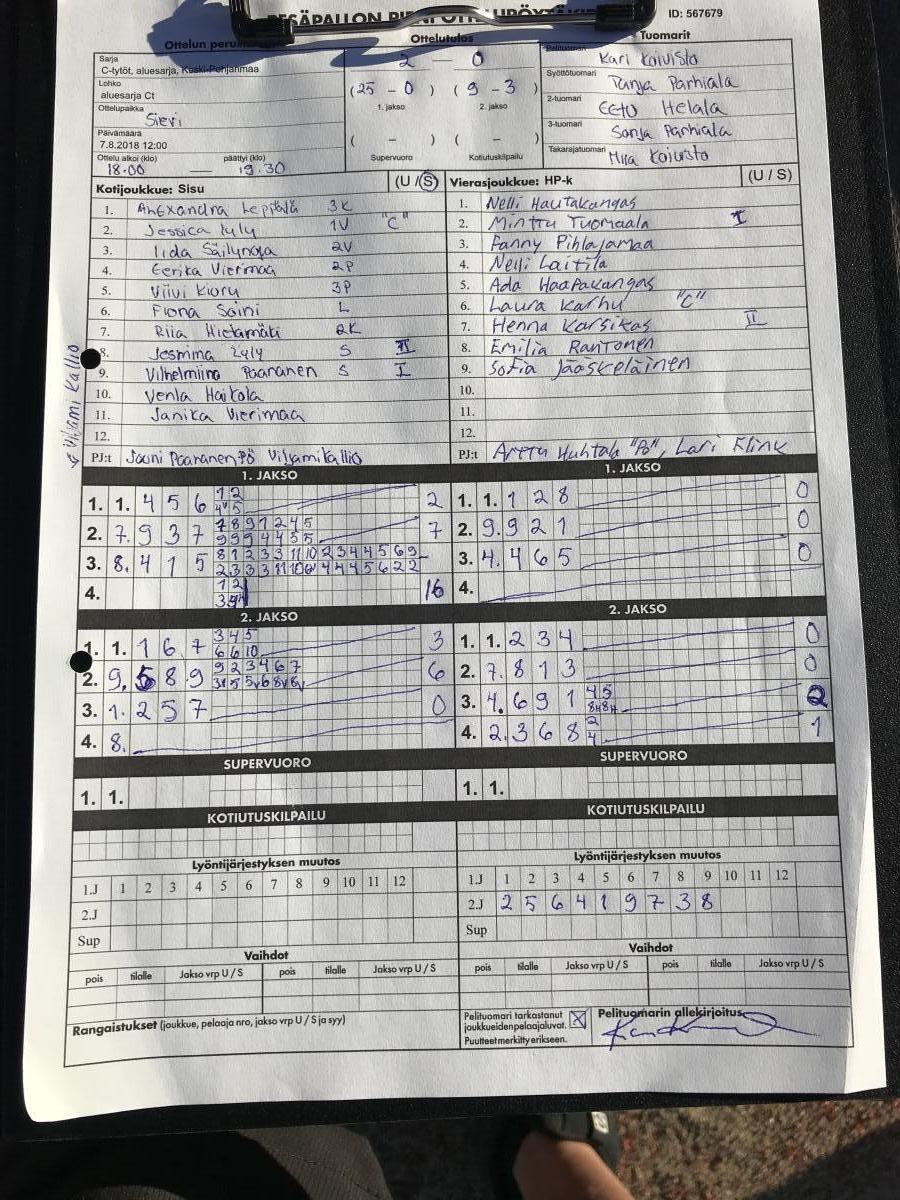 PESÄPALLON PIENI OTTELUPÖYTÄKIRJA
ID: 567679
Ottelun perustiedot
Sarja
C-tytöt, aluesarja, Keski-Pohjanmaa
Lohko
aluesarja Ct
Ottelupaikka
Sievi
Päivämäärä
7.8.2018 12:00
Ottelu alkoi (klo) päättyi (klo)
18.00 — 19.30
Ottelutulos
2 — 0
(25 - 0) (9 - 3)
1. jakso 2. jakso
( - ) ( - )
Supervuoro Kotiutuskilpailu
Tuomarit
Pelituomari Kari Koivisto
Syöttötuomari Tanja Parhiala
2-tuomari Eetu Helala
3-tuomari Sonja Parhiala
Takarajatuomari Miia Koivisto
Kotijoukkue: Sisu (U / S)
1. Alexandra Leppälä 3K
2. Jessica Lyly 1V "C"
3. Iida Säilynoja 2V
4. Eerika Vierimaa 2P
5. Viivi Kioru 3P
6. Fiona Saini L
7. Riia Hietamäki 2K
8. Jesmina Lyly S II
9. Vilhelmiina Paananen S I
10. Venla Haikola
11. Janika Vierimaa
12.
PJ:t Jouni Paananen PÖ Viljami Kallio
Viljami Kallio
Vierasjoukkue: HP-k (U / S)
1. Nelli Hautakangas
2. Minttu Tuomaala I
3. Fanny Pihlajamaa
4. Nelli Laitila
5. Ada Haapakangas
6. Laura Karhu "C"
7. Henna Karsikas II
8. Emilia Rantonen
9. Sofia Jääskeläinen
10.
11.
12.
PJ:t Arttu Huhtala "PÖ", Lari Klink
1. JAKSO
1. 1. 4 5 6 1 2 2
4 5
2. 7. 9 3 7 7 8 9 1 2 4 5 7
9 9 9 4 4 5 5
3. 8. 4 1 5 8 1 2 3 3 11 10 2 3 4 4 5 6 9
2 3 3 3 11 10 6 4 4 4 5 6 2 2
4. 1 2 16
1. JAKSO
1. 1. 1 2 8 0
2. 9. 9 2 1 0
3. 4. 4 6 5 0
4.
2. JAKSO
1. 1. 1 6 7 3 4 5 3
6 6 10
2. 9. 5 8 9 9 2 3 4 6 7 6
3. 1. 2 5 7 0
4. 8.
2. JAKSO
1. 1. 2 3 4 0
2. 7. 8 1 3 0
3. 4. 6 9 1 4 5 2
4. 2. 3 6 8 2 1
4
SUPERVUORO
1. 1.
SUPERVUORO
1. 1.
KOTIUTUSKILPAILU
KOTIUTUSKILPAILU
Lyöntijärjestyksen muutos
1.J 1 2 3 4 5 6 7 8 9 10 11 12
2.J
Sup
Lyöntijärjestyksen muutos
1.J 1 2 3 4 5 6 7 8 9 10 11 12
2.J 2 5 6 4 1 9 7 3 8
Sup
Vaihdot
pois tilalle Jakso vrp U / S pois tilalle Jakso vrp U / S
Vaihdot
pois tilalle Jakso vrp U / S pois tilalle Jakso vrp U / S
Rangaistukset (joukkue, pelaaja nro, jakso vrp U / S ja syy)
Pelituomari tarkastanut
joukkueiden pelaajaluvat. X
Puutteet merkitty erikseen.
Pelituomarin allekirjoitus